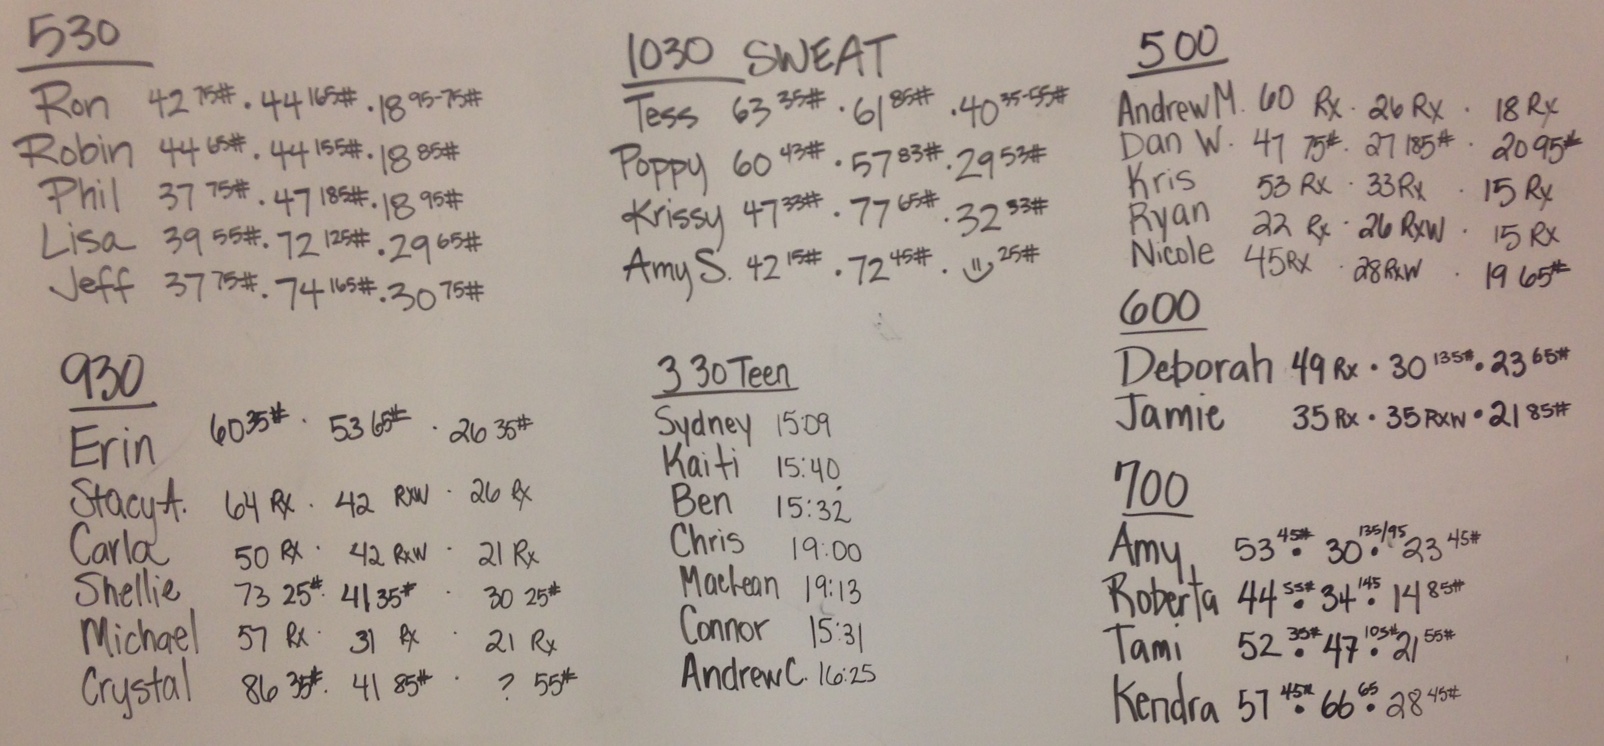 530
Ron 42 75# · 44 165# · 18 95-75#
Robin 44 65# · 44 155# · 18 85#
Phil 37 75# · 47 185# · 18 95#
Lisa 39 55# · 72 125# · 29 65#
Jeff 37 75# · 74 165# · 30 75#
930
Erin 60 35# · 53 65# · 26 35#
Stacy A. 64 Rx · 42 RxW · 26 Rx
Carla 50 Rx · 42 RxW · 21 Rx
Shellie 73 25# · 41 35# · 30 25#
Michael 57 Rx · 31 Rx · 21 Rx
Crystal 86 35# · 41 85# · ? 55#
1030 SWEAT
Tess 63 35# · 61 85# · 40 35-55#
Poppy 60 43# · 57 83# · 29 53#
Krissy 47 33# · 77 65# · 32 33#
Amy S. 42 15# · 72 45# · 25#
3 30 Teen
Sydney 15:09
Kaiti 15:40
Ben 15:32
Chris 19:00
MacLean 19:13
Connor 15:31
Andrew C. 16:25
500
Andrew M. 60 Rx · 26 Rx · 18 Rx
Dan W. 47 75# · 27 185# · 20 95#
Kris 53 Rx · 33 Rx · 15 Rx
Ryan 22 Rx · 26 RxW · 15 Rx
Nicole 45 Rx · 28 RxW · 19 65#
600
Deborah 49 Rx · 30 135# · 23 65#
Jamie 35 Rx · 35 RxW · 21 85#
700
Amy 53 45# · 30 135/95 · 23 45#
Roberta 44 55# · 34 145 · 14 85#
Tami 52 35# · 47 105# · 21 55#
Kendra 57 45# · 66 65 · 28 45#